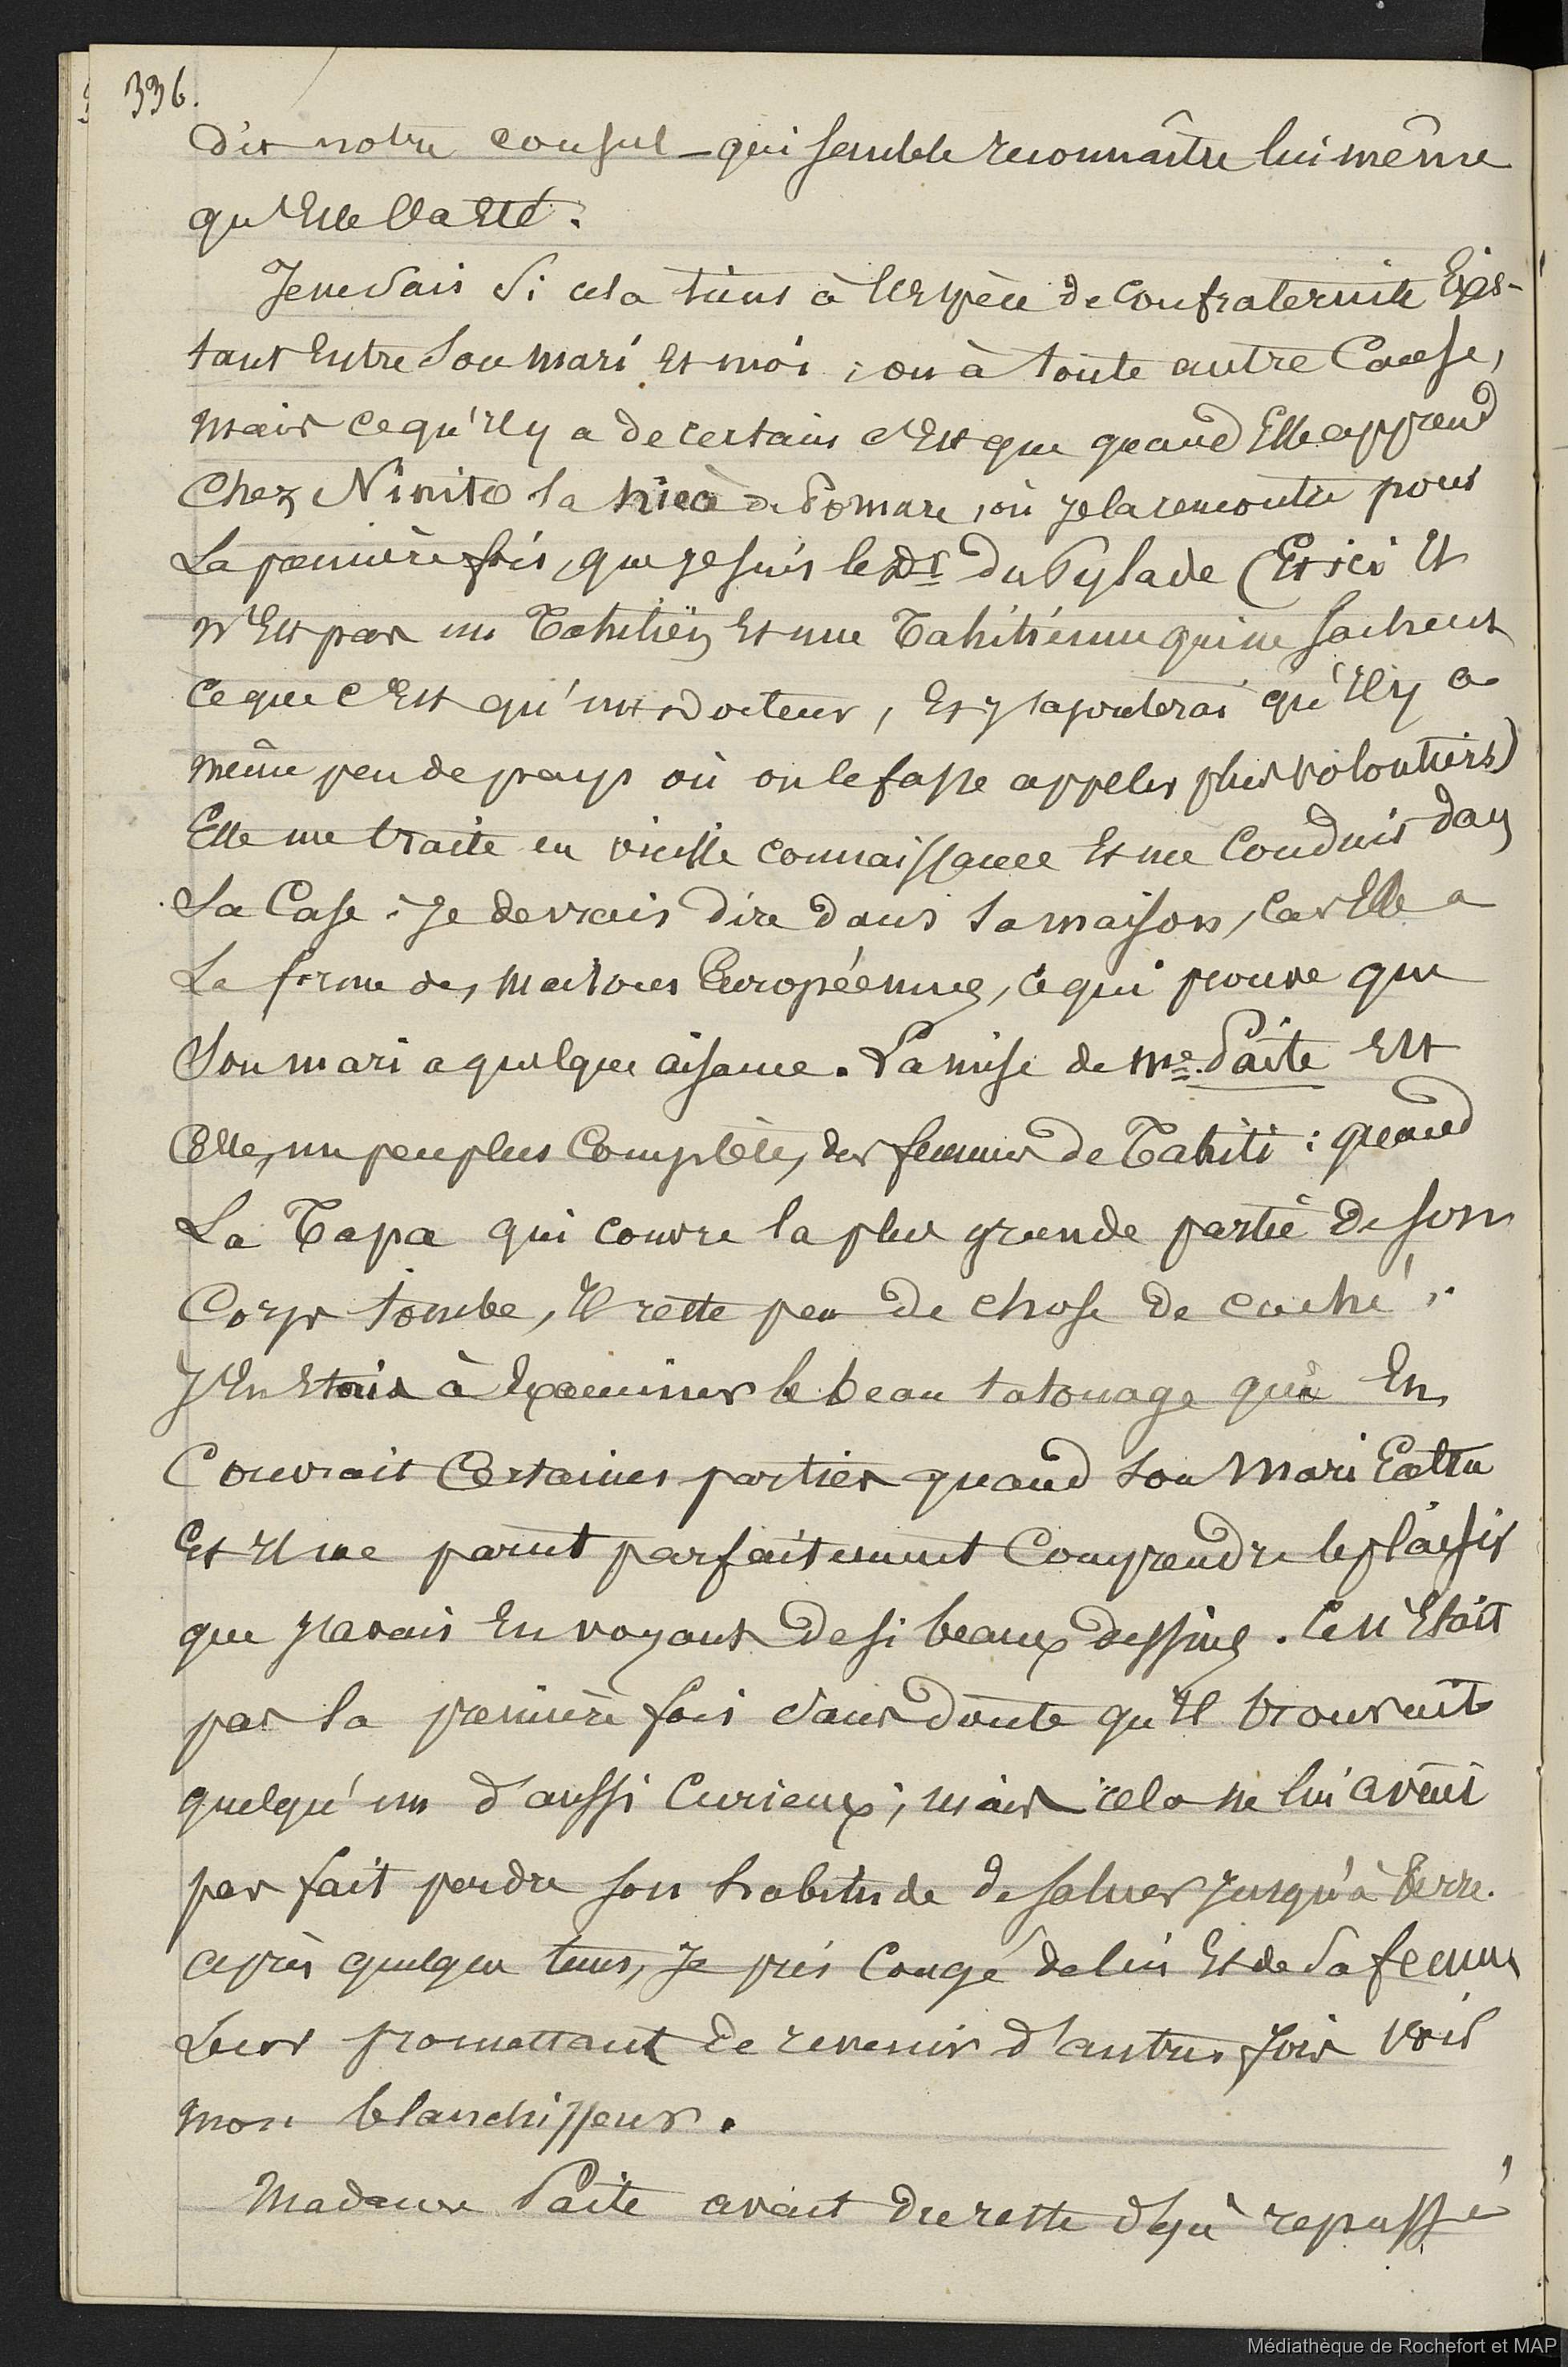 336.
dit notre consul - qui semble reconnaître lui même
qu'Elle l'a Eté.
Je ne sais si cela tient à l'Espèce de confraternité Exis-
tant Entre son mari Et moi, ou à toute autre Cause,
mais ce qu'Il y a de certain c'Est que quand Elle apprend
Chez Ninito la nièce de Pomare, où je la rencontre pour
La première fois, que je suis le Dr du Pylade (Et ici Il
n'Est pas un Tahitien Et une Tahitienne qui ne sachent
ce que c'Est qu'un Docteur, Et j'ajouterai qu'Il y a
même peu de pays où on le fasse appeler plus volontiers)
Elle me traite en vieille connaissance Et me Conduit dans
Sa Case : Je devrais dire dans sa maison, car Elle a
La forme des maisons Européennes, ce qui prouve que
Son mari a quelque aisance. La mise de Me Païte Est
Celle, un peu plus Complète, des femmes de Tahiti : quand
La Tapa qui couvre la plus grande partie de son
Corps tombe, Il reste peu de chose de caché.
J'En Etais à Examiner le beau tatouage qui En
Couvrait Certaines parties quand son Mari Entra
Et Il me parut parfaitement Comprendre le plaisir
que j'avais En voyant de si beaux dessins. Ce n'Etait
pas la première fois sans Doute qu'Il trouvait
quelqu'un d'aussi Curieux ; mais cela ne lui avait
pas fait perdre son habitude de saluer jusqu'à terre.
après quelque tems, Je pris Congé de lui Et de Sa femme
Leur promettant de revenir d'autres fois voir
mon blanchisseur.
Madame Païte avait du reste déjà repassé
Médiathèque de Rochefort et MAP